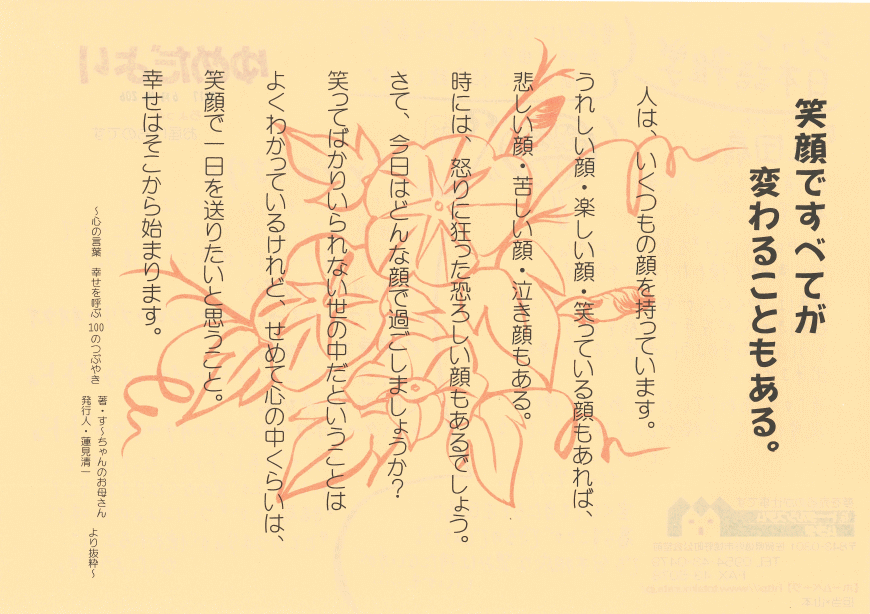 笑顔ですべてが
変わることもある。
人は、いくつもの顔を持っています。
うれしい顔・楽しい顔・笑っている顔もあれば、
悲しい顔・苦しい顔・泣き顔もある。
時には、怒りに狂った恐ろしい顔もあるでしょう。
さて、今日はどんな顔で過ごしましょうか?
笑ってばかりいられない世の中だということは
よくわかっているけれど、せめて心の中くらいは、
笑顔で一日を送りたいと思うこと。
幸せはそこから始まります。
~心の言葉 幸せを呼ぶ 100のつぶやき
著・す~ちゃんのお母さん
発行人・蓮見清一
より抜粋~
ゆめだより